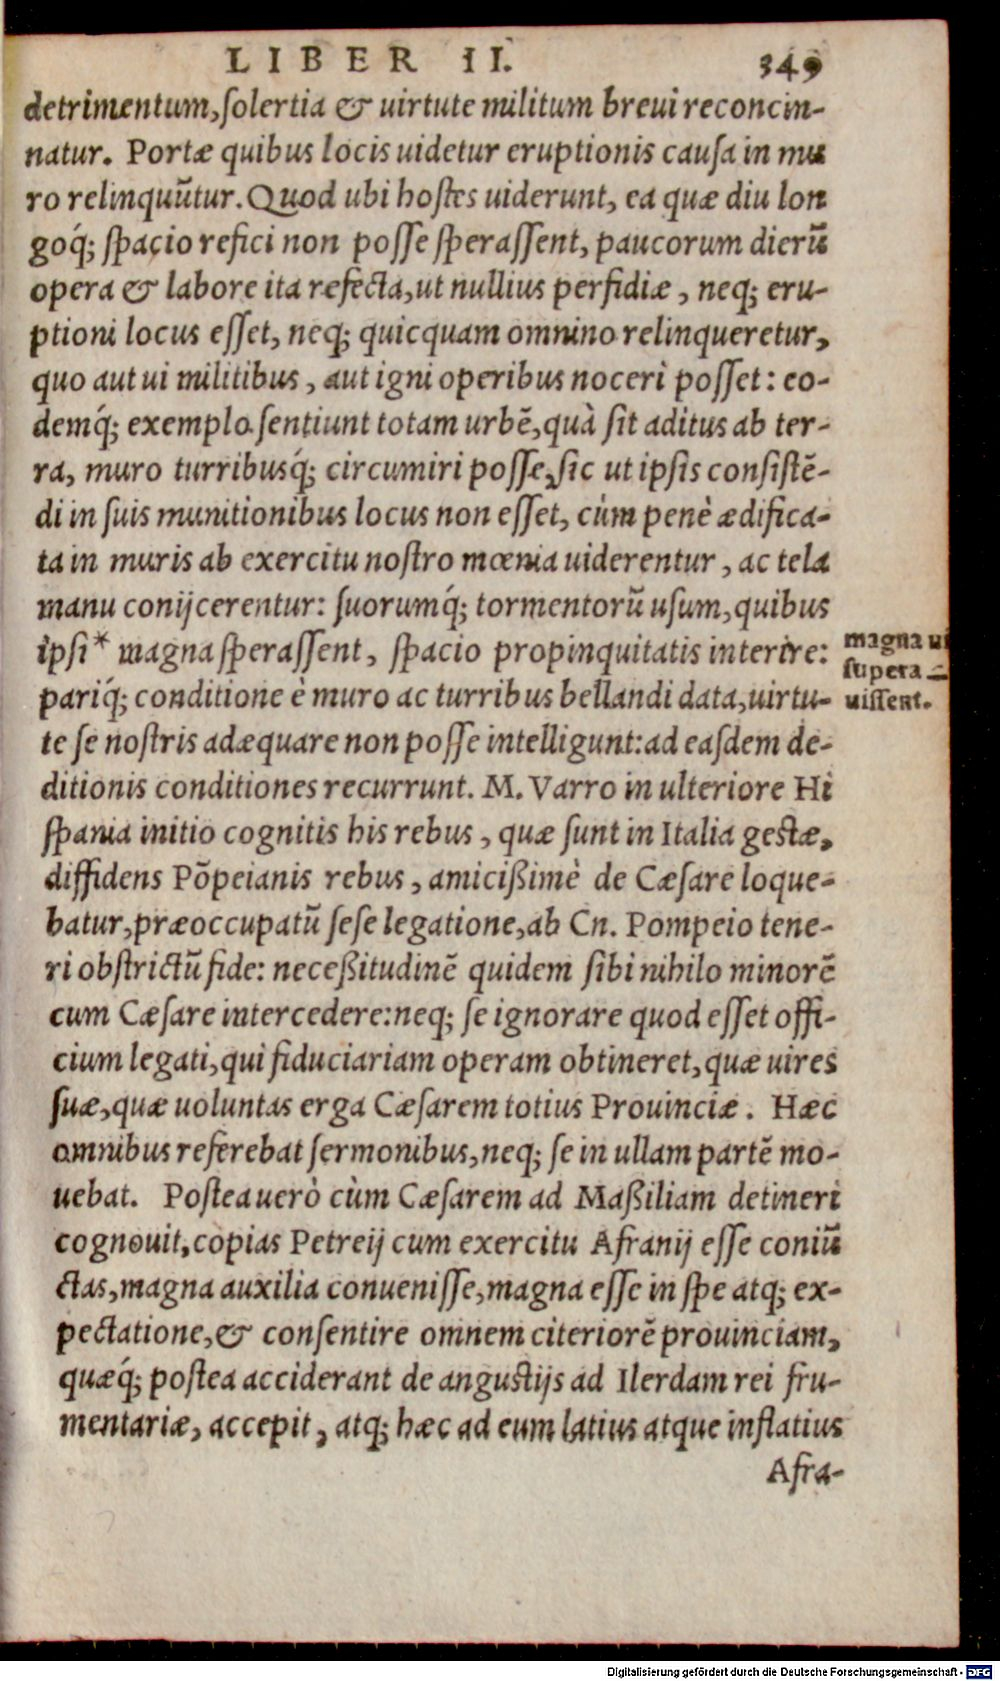 LIBER II. 349
detrimentum, ſolertia & uirtute militum breui reconcin-
natur. Portæ quibus locis uidetur eruptionis cauſa in mu
ro relinquūtur. Quod ubi hoſtes uiderunt, ea quæ diu lon
goq́; ſpacio refici non poſſe ſperaſſent, paucorum dierū
opera & labore ita refecta, ut nullius perfidiæ, neq; eru-
ptioni locus eſſet, neq; quicquam omnino relinqueretur,
quo aut ui militibus, aut igni operibus noceri poſſet: eo-
demq́; exemplo ſentiunt totam urbē, quà ſit aditus ab ter-
ra, muro turribusq́; circumiri poſſe, ſic ut ipſis conſiſtē-
di in ſuis munitionibus locus non eſſet, cùm penè ædifica-
ta in muris ab exercitu noſtro mœnia uiderentur, ac tela
manu conijcerentur: ſuorumq́; tormentorū uſum, quibus
ipſi* magna ſperaſſent, ſpacio propinquitatis interire:
magna ui
ſupera-
uiſſent.
pariq́; conditione è muro ac turribus bellandi data, uirtu-
te ſe noſtris adæquare non poſſe intelligunt: ad eaſdem de-
ditionis conditiones recurrunt. M. Varro in ulteriore Hi
ſpania initio cognitis his rebus, quæ ſunt in Italia geſtæ,
diffidens Pōpeianis rebus, amicißimè de Cæſare loque-
batur, præoccupatū ſeſe legatione, ab Cn. Pompeio tene-
ri obſtrictū fide: neceßitudinē quidem ſibi nihilo minorē
cum Cæſare intercedere: neq; ſe ignorare quod eſſet offi-
cium legati, qui fiduciariam operam obtineret, quæ uires
ſuæ, quæ uoluntas erga Cæſarem totius Prouinciæ. Hæc
omnibus referebat ſermonibus, neq; ſe in ullam partē mo-
uebat. Poſtea uerò cùm Cæſarem ad Maßiliam detineri
cognouit, copias Petreij cum exercitu Afranij eſſe coniū
ctas, magna auxilia conueniſſe, magna eſſe in ſpe atq; ex-
pectatione, & conſentire omnem citeriorē prouinciam,
quæq́; poſtea acciderant de anguſtijs ad Ilerdam rei fru-
mentariæ, accepit, atq; hæc ad eum latius atque inflatius
Afra-
Digitalisierung gefördert durch die Deutsche Forschungsgemeinschaft - DFG